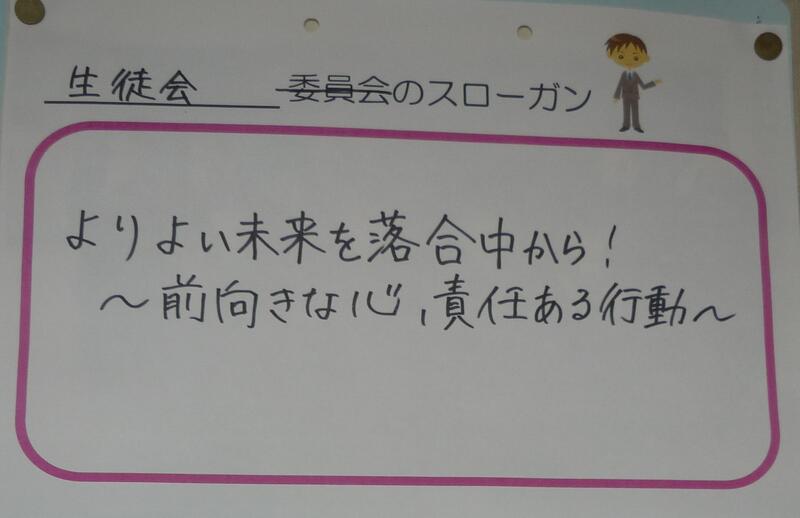 生徒会 委員会のスローガン
よりよい未来を落合中から!
～前向きな心,責任ある行動～